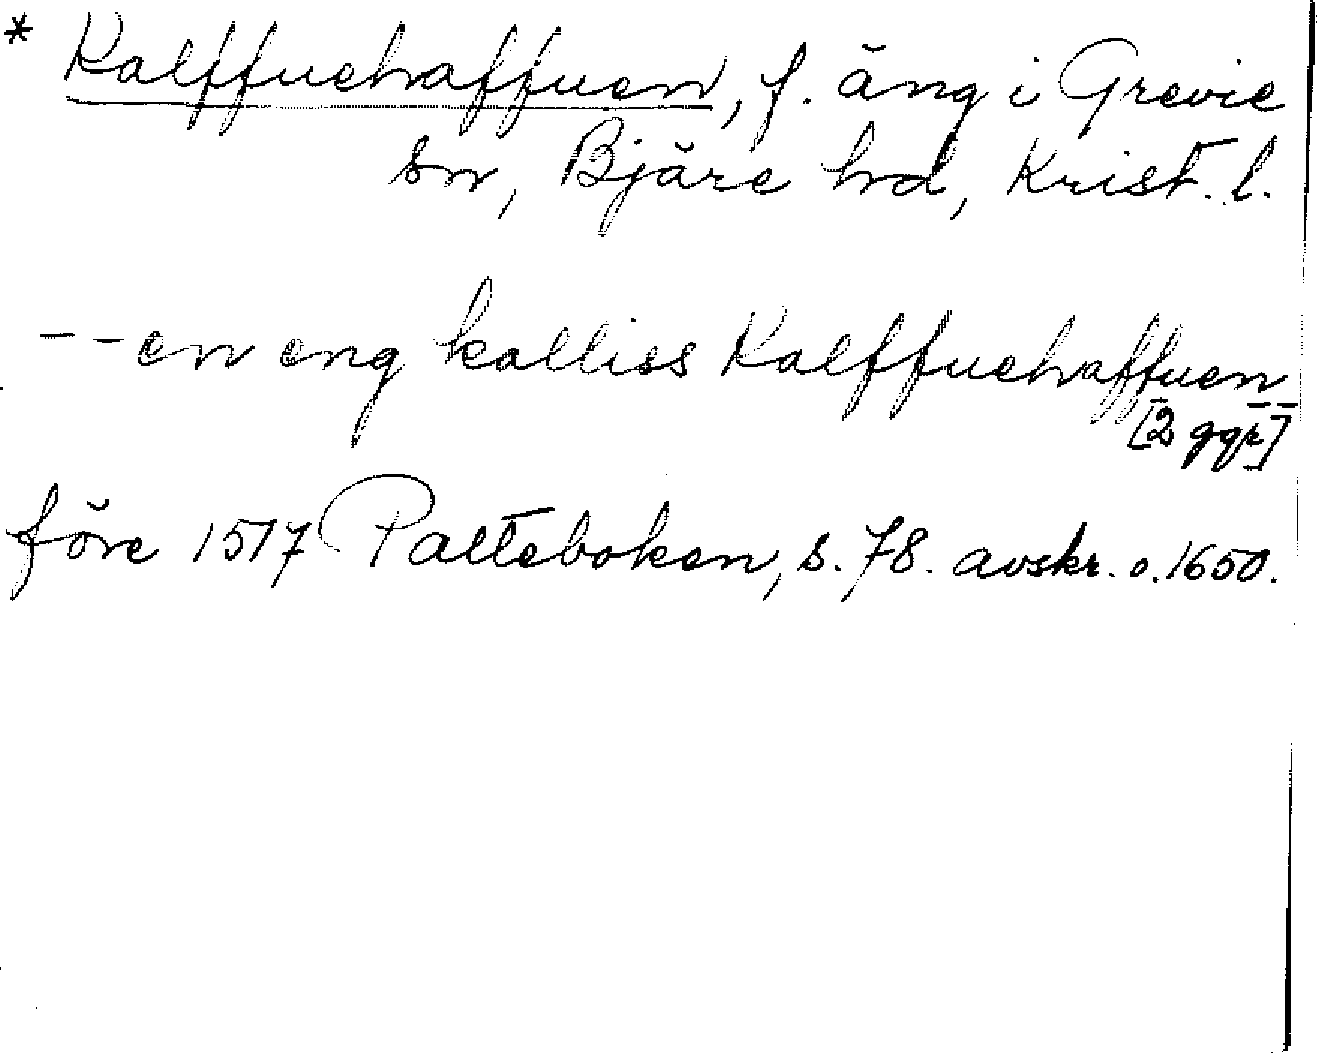 * Kalffuehaffuen, f. äng i Grevie
sn, Bjäre hd, Krist. l.
-- en eng kalliss Kalffuehaffuen --
[2 ggr]
före 1517 Palteboken, s. 78. avskr. o. 1650.